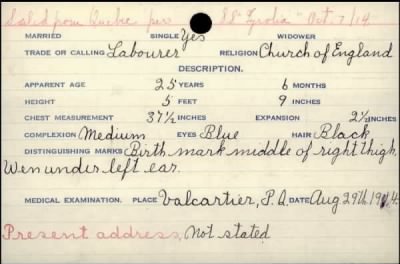 Sailed from Quebec per SS "Tyrolia" Oct. 7/14.
MARRIED SINGLE Yes WIDOWER
TRADE OR CALLING Labourer RELIGION Church of England
DESCRIPTION.
APPARENT AGE 25 YEARS 6 MONTHS
HEIGHT 5 FEET 9 INCHES
CHEST MEASUREMENT 37½ INCHES EXPANSION 2½ INCHES
COMPLEXION Medium EYES Blue HAIR Black
DISTINGUISHING MARKS Birth mark middle of right thigh
Wen under left ear.
MEDICAL EXAMINATION. PLACE Valcartier, P.Q. DATE Aug 29th. 1914.
Present address, Not stated